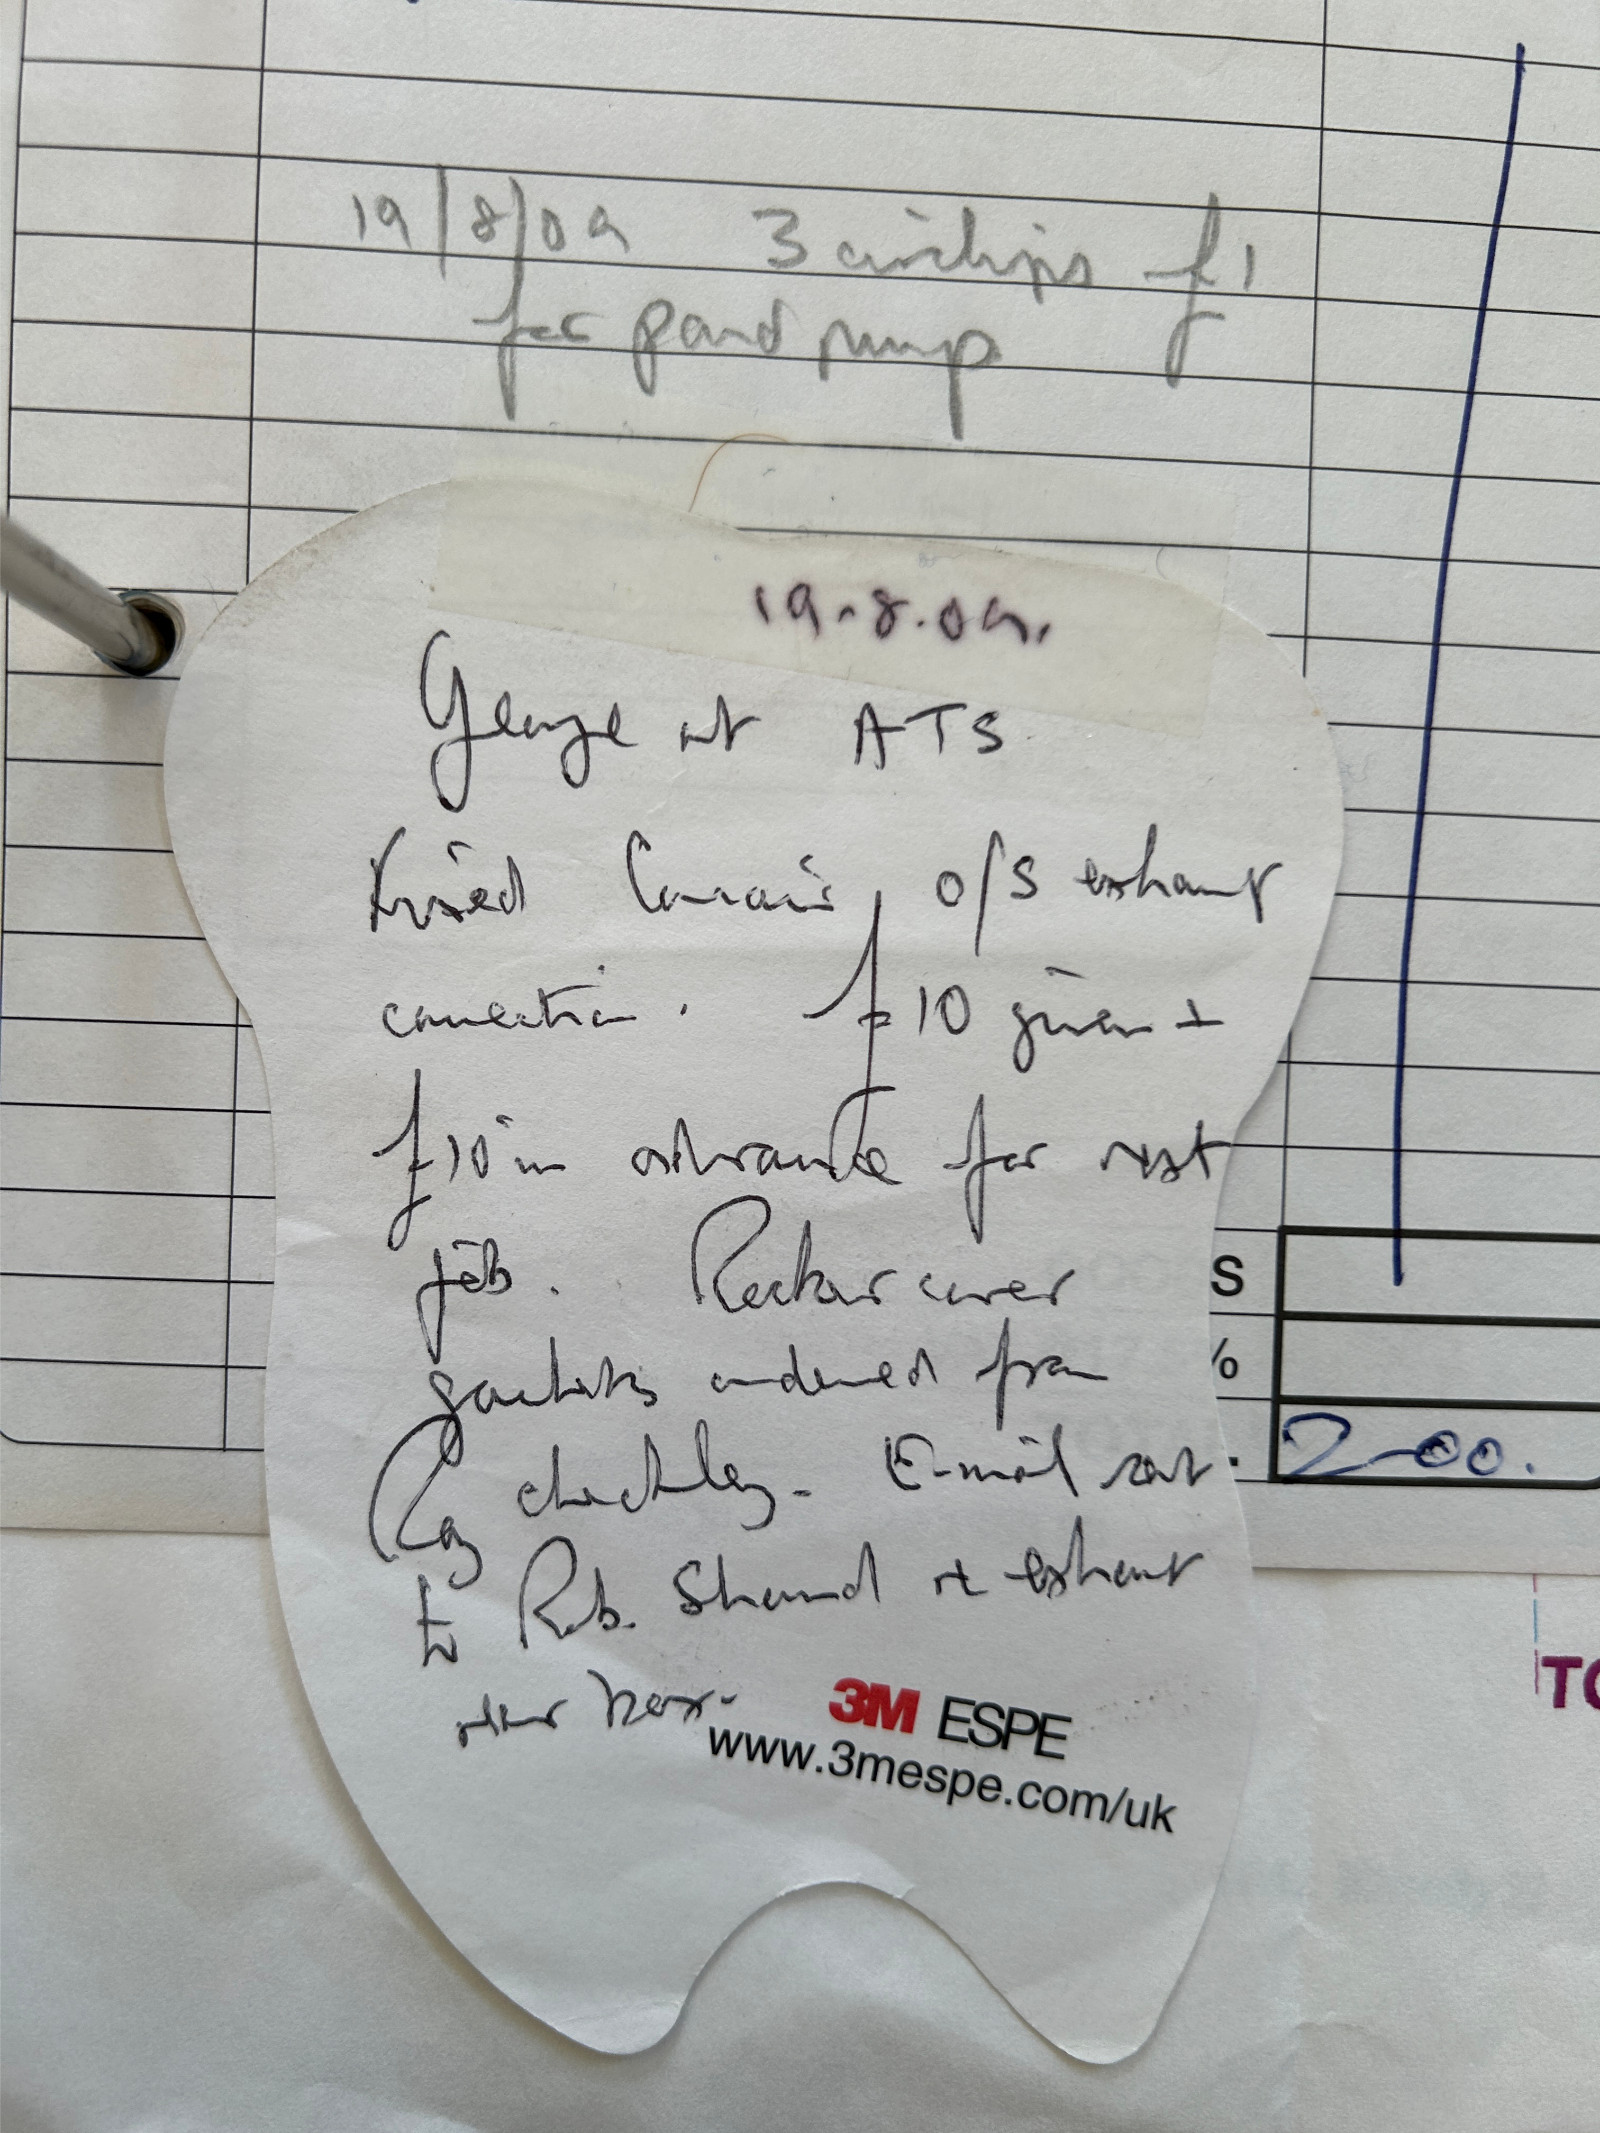 19/8/09 3 circlips £1
for pond pump
19.8.09.
George at ATS
fixed Corvair, o/s exhaust
connection. £10 given +
£10 in advance for next
job. Rocker cover
gaskets ordered from
Ray Checkley. E-mail sent
to Rob. Shand re exhaust
other
3M ESPE
www.3mespe.com/uk
S
%
2-00.
TO